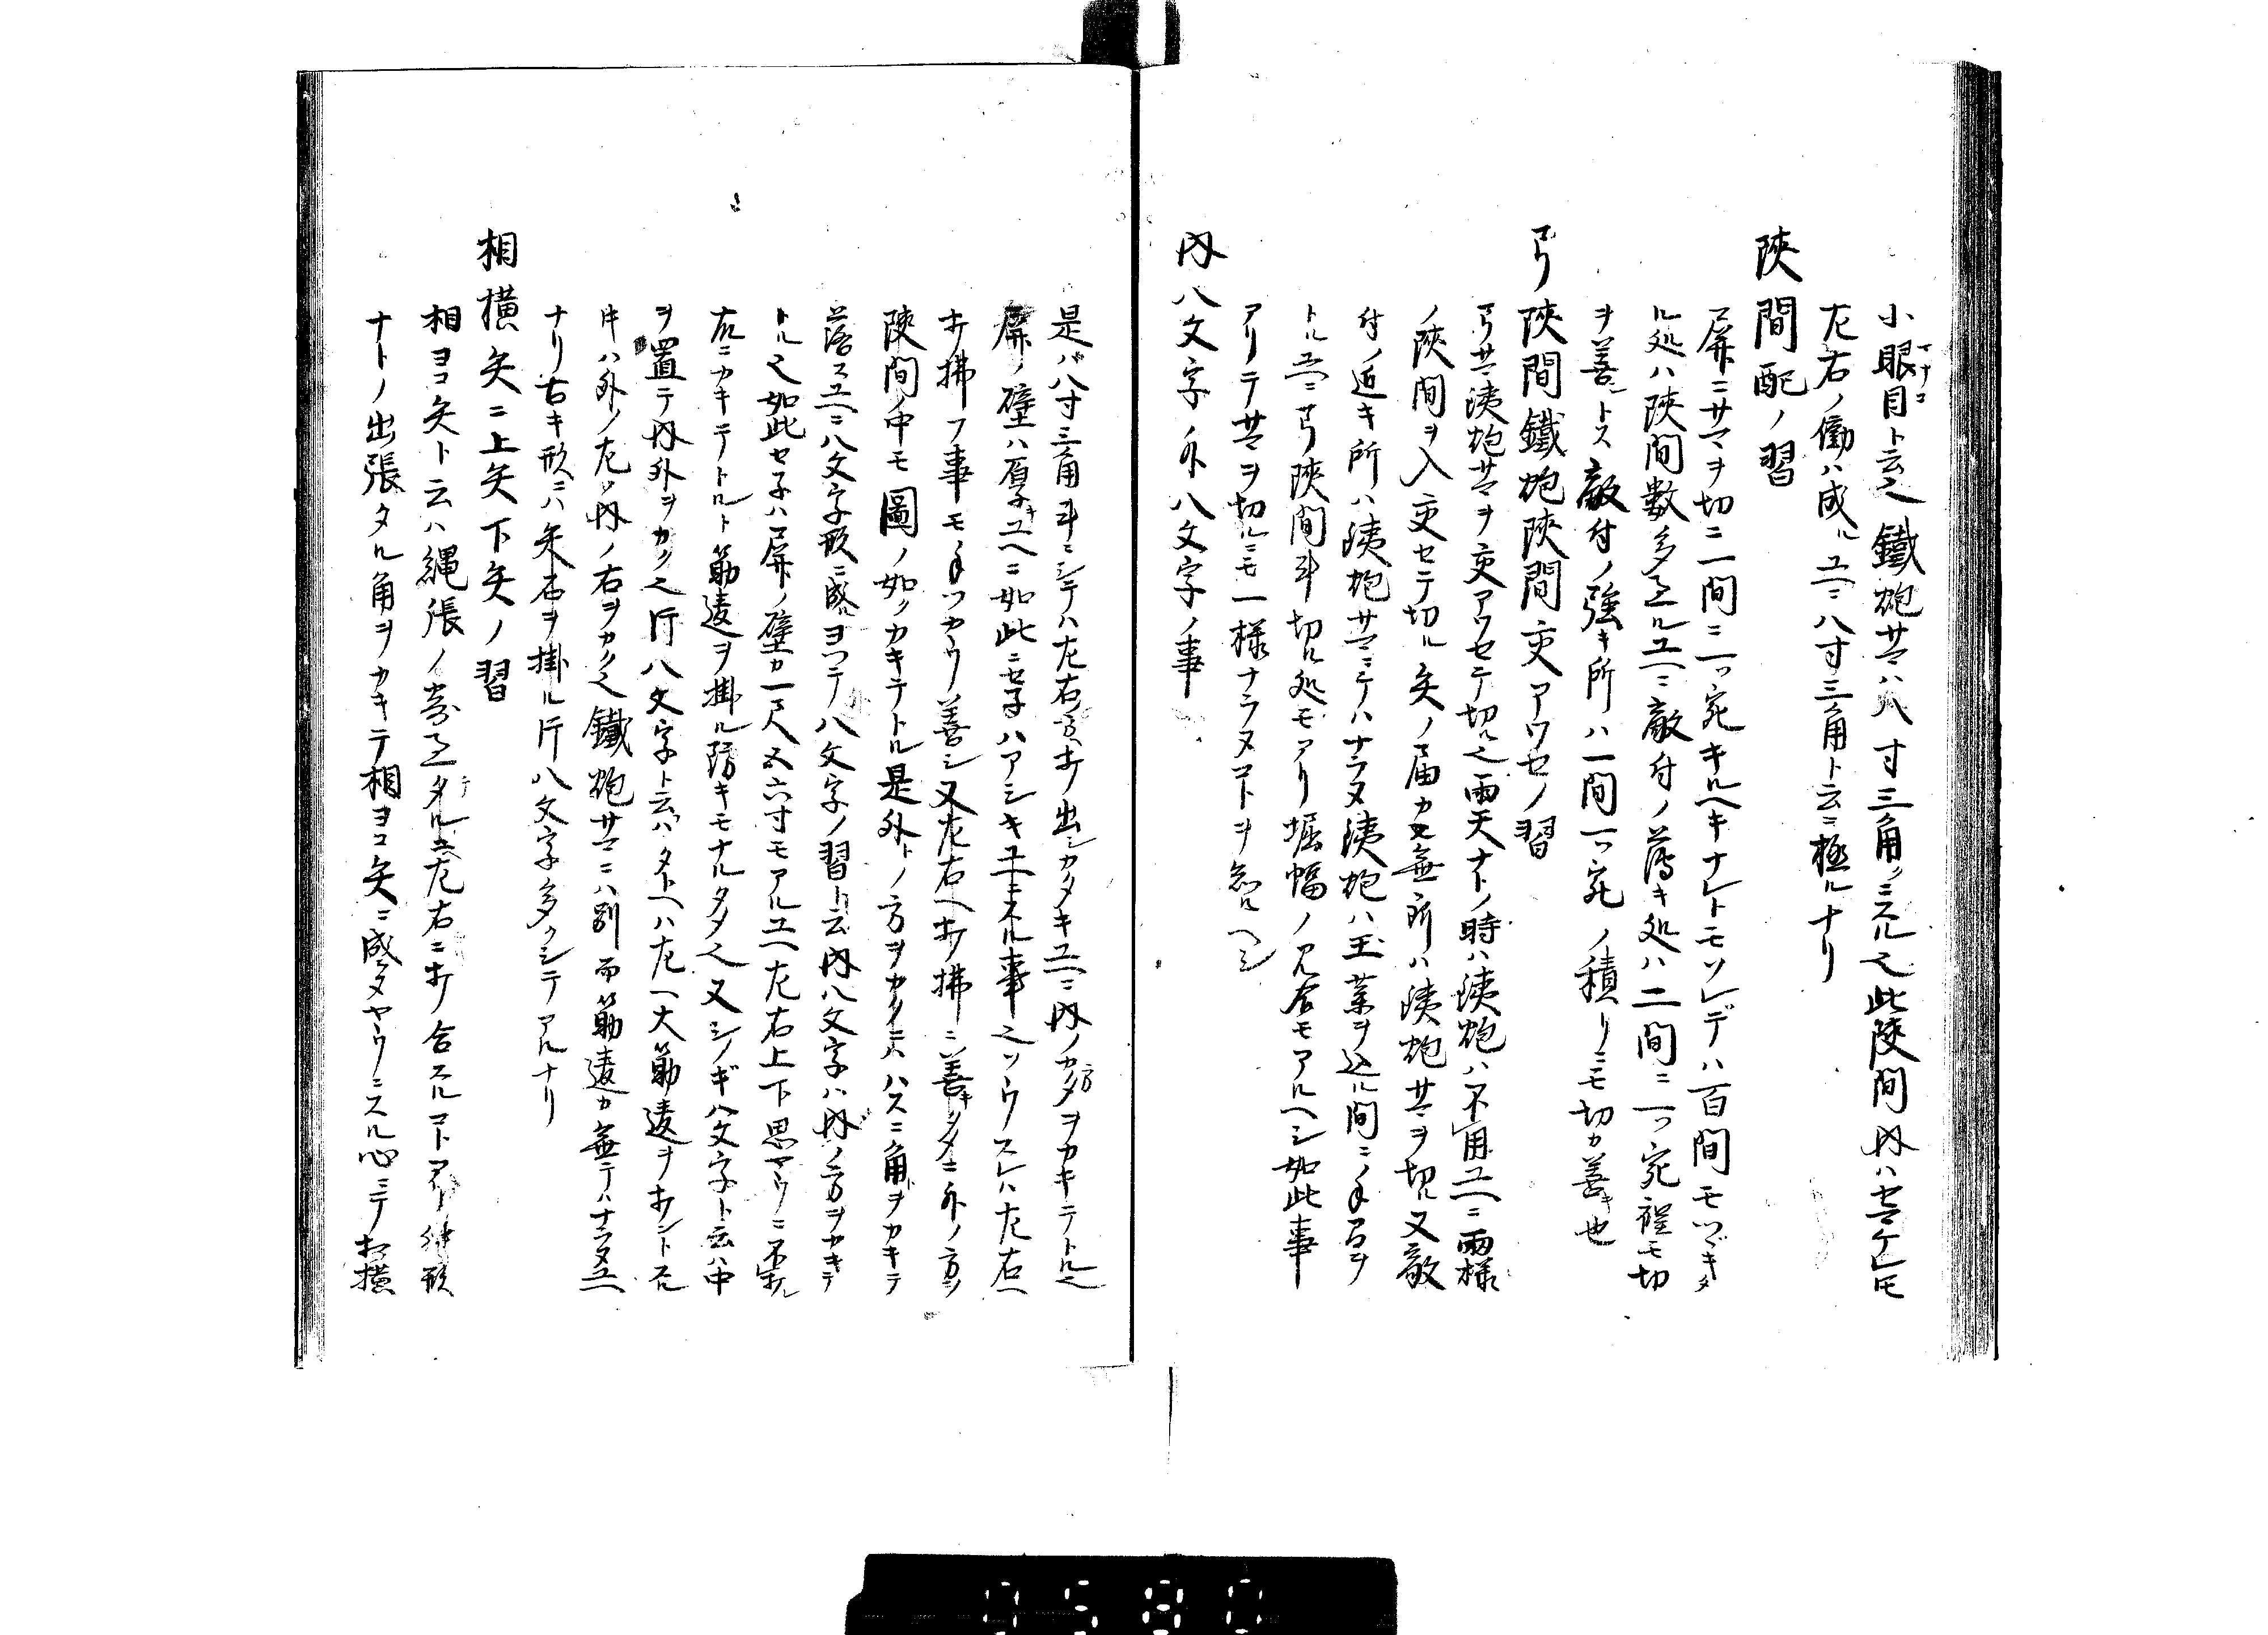 小眼目ト云之鐵炮サマハ八寸三角ノミスル之此陜間内ハセマケレ𪜈
マナコ
左右ノ働ハ成ルユヘニ八寸三角ト云ニ極ルナリ
陜間配ノ習
屏ニサマヲ切ニ一間ニ一ツ宛キルヘキナレトモソレデハ百間モツヾキタ
ル処ハ陜間数多アルユヘニ敵付ノ薄キ処ハ二間ニ一ツ宛程モ切
ヲ善トス敵付ノ強キ所ハ一間一ツ宛ノ積リニモ切カ善キ也
弓陜間鐵炮陜間交アワセノ習
弓サマ銕炮サマヲ交アワセテ切ル之雨天ナトノ時ハ銕炮ハ不用ユヘニ両様
ノ陜間ヲ入交セテ切ル矢ノ届カヌ所ハ銕炮サマヲ切ル又敵
付ノ近キ所ハ銕炮サマニテハナラヌ銕炮ハ玉薬ヲ込ル間ニノ手間ヲ
トルユヘニ弓陜間斗切ル処モアリ堀幅ノ見合モアルヘシ如此事
アリテサマヲ切ルニモ一様ナラヌコトヲ知ルヘシ
内八文字外八文字ノ事
是ハ八寸三角斗ニシテハ左右ヘ打出シカタキユヘニ内ノカタヲカキテトル之
方
屏ノ壁ハ厚キユヘニ如此ニセネハアシキユヘニスル事之ソウスレハ左右ヘ
打拂フ事モ手ツカウ善シ又左右ヘ打拂ニ善キタメニ外ノ方ノ
陜間ノ中モ圖ノ如クカキテトル是外トノ方ヲカクニハハスニ角ヲカキテ
落スユヘニ八文字形ニ成ヨツテ八文字ノ習ト云内八文字ハ内ノ方ヲカキテ
トル之如此セネハ屏ノ壁カ一尺五六寸モアルユヘ左右上下思ヤウニ不成ル
左ニカキテトルト筋違ヲ掛ル防キモナルタメ之又シノギ八文字ト云ハ中
ヲ置テ内外ヲカク之片八文字ト云ハタトヘハ左ヘ大筋違ヲ打ントスル
時ハ外ノ左ト内ノ右ヲカク之鐵炮サマニハ別而筋違カ無テハナラヌユヘ
ナリ古キ形ニハ矢石ヲ掛ル片八文字多クシテアルナリ
相横矢ニ上矢下矢ノ習
相ヨコ矢ト云ハ縄張ノ歪タルユヘ左右ニ打合スルコトアリ
ナトノ出張タル角ヲカキテ相ヨコ矢ニ成ヌヤウニスル心ニテ